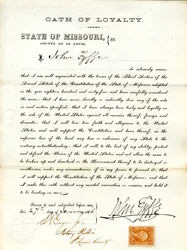 OATH OF LOYALTY.
STATE OF MISSOURI, } ss.
COUNTY OF ST. LOUIS,
I, John Fyffe
do solemnly swear
that I am well acquainted with the terms of the third Section of the
Second Article of the Constitution of the State of Missouri, adopted
in the year eighteen hundred and sixty-five, and have carefully considered
the same; that I have never, directly or indirectly, done any of the acts
in said section specified; that I have always been truly and loyally on
the side of the United States against all enemies thereof, foreign and
domestic; that I will bear true faith and allegiance to the United
States, and will support the Constitution and laws thereof, as the
supreme law of the land, any law or ordinance of any State to the
contrary notwithstanding; that I will, to the best of my ability, protect
and defend the Union of the United States, and not allow the same to
be broken up and dissolved, or the Government thereof to be destroyed or
overthrown, under any circumstances, if in my power to prevent it; that
I will support the Constitution of the State of Missouri; and that
I make this oath without any mental reservation or evasion, and hold it
to be binding on me.
Sworn to and subscribed before me this
27
John Fyffe